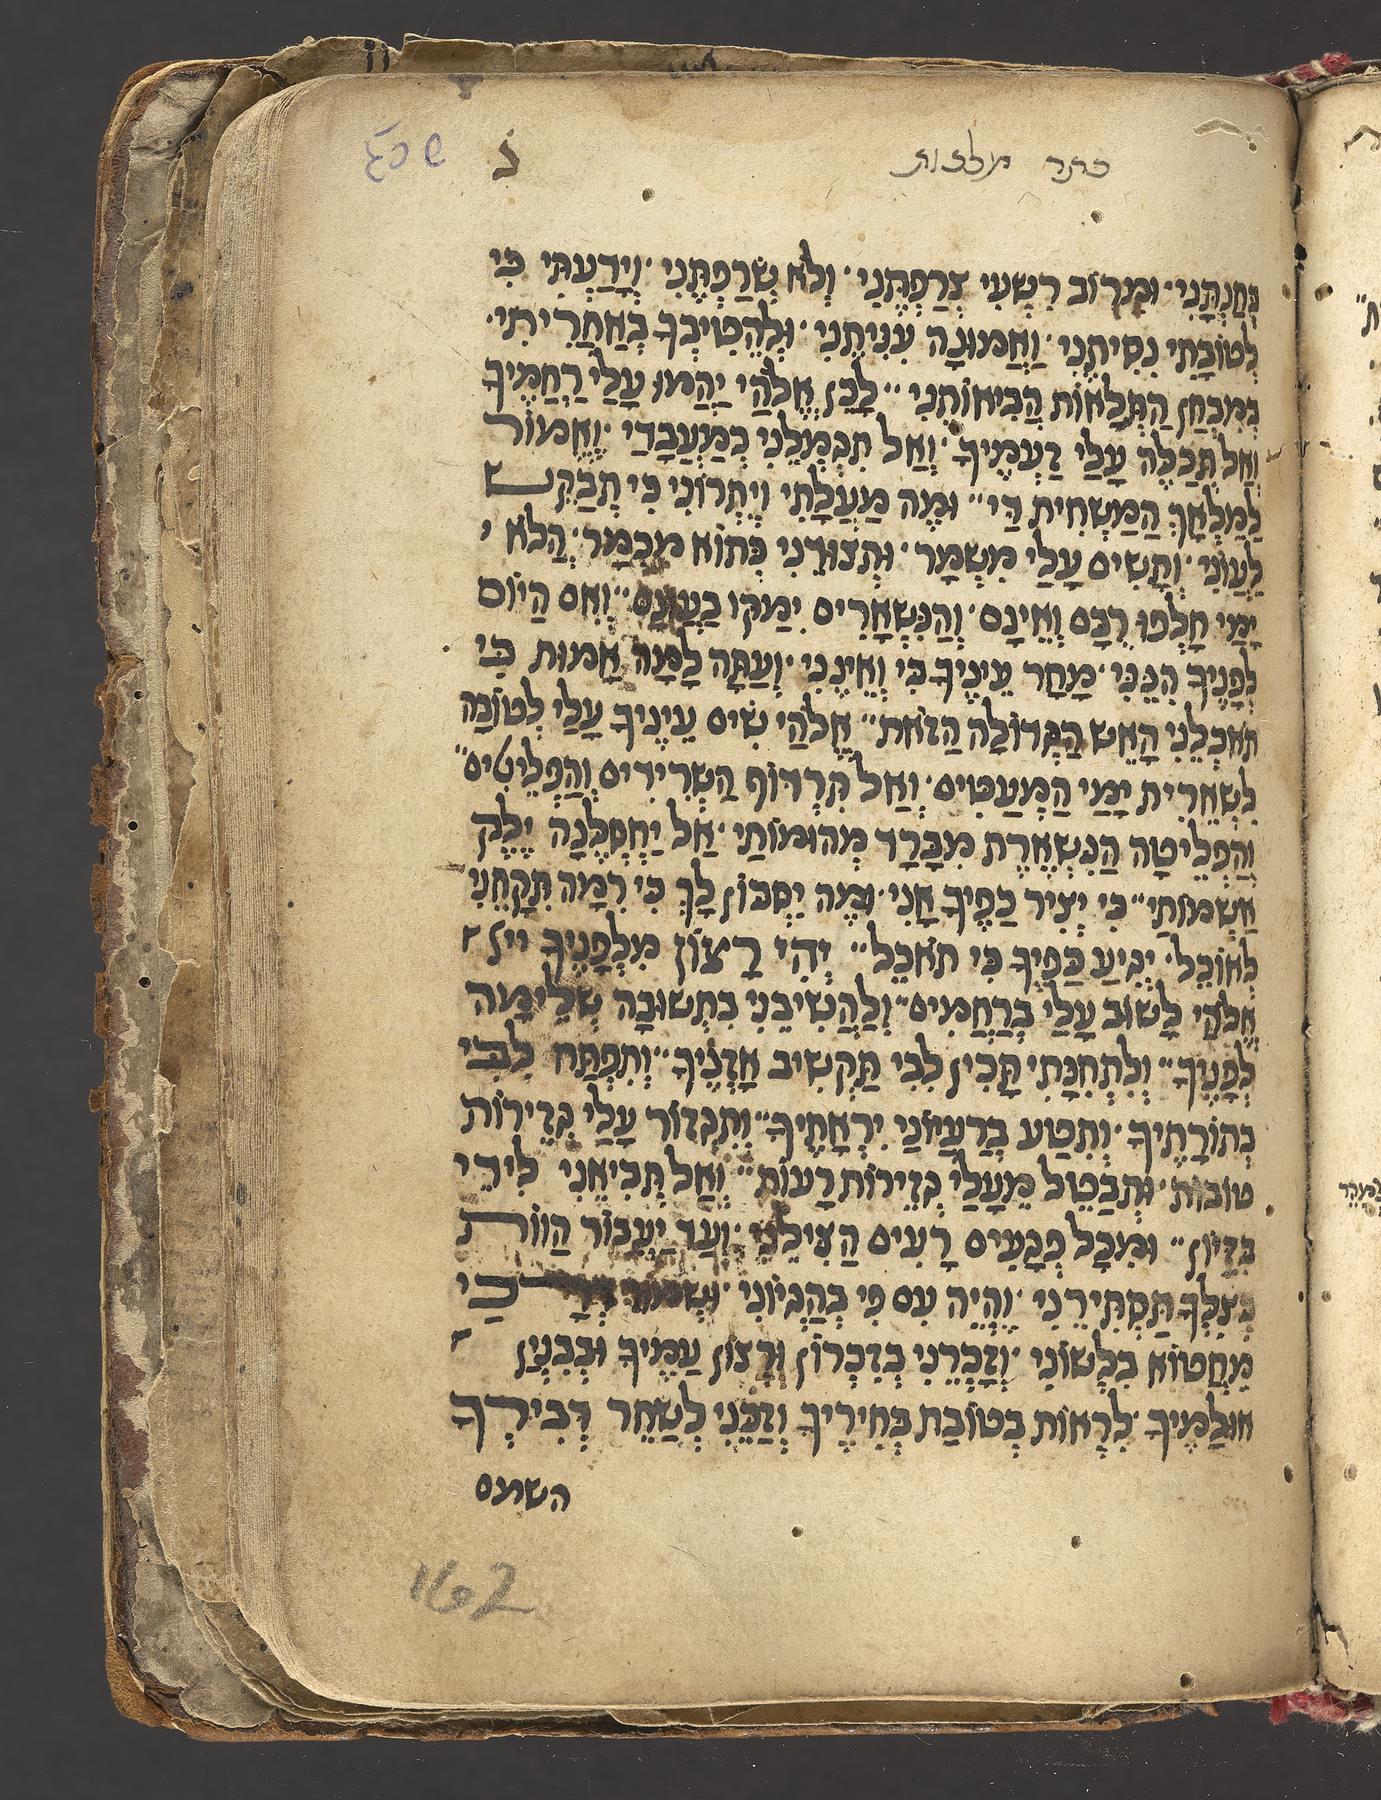 כתר מלכות
בְּחַנְתָּנִי · וּמֵרוֹב רִשְעִי צְרַפְתֶּנִי · וְלֹא שְׂרַפְתֶּנִי · וְיָדַעְתִּי כִּי
לְטוֹבָתִי נִסִּיתֶנִי · וֶאֱמוּנָה עִנִּיתֶנִי · וּלְהֵטִיבְךָ בְּאַחֲרִיתִי ·
בְּמִבְחַן הַתְּלָאוֹת הֲבִיאוֹתֶנִי ·· לָכֵן אֱלֹהַי יֶהֱמוּ עָלַי רַחֲמֶיךָ
וְאַל תְּכַלֶּה עָלַי זַעְמֶיךָ · וְאַל תִּגְמְלֵנִי כְּמַעֲבָדַי · וֶאֱמוֹר
לַמַּלְאָךְ הַמַּשְׁחִית דַּי ·· וּמֶה מַעֲלָתִי וְיִתְרוֹנִי כִּי תְבַקֵּשׁ
לַעֲוֹנִי · וְתָשִׂים עָלַי מִשְׁמָר · וּתְצוּדֵנִי כְּתוֹא מִכְמָר · הֲלֹא
יָמַי חָלְפוּ רֻבָּם וְאֵינָם · וְהַנִּשְׁאָרִים יִמַּקּוּ בַּעֲוֹנָם ·· וְאִם הַיּוֹם
לְפָנֶיךָ הִנֵּנִי · מָחָר עֵינֶיךָ בִּי וְאֵינֶנִּי · וְעַתָּה לָמָּה אָמוּת כִּי
תֹאכְלֵנִי הָאֵשׁ הַגְּדוֹלָה הַזֹּאת ·· אֱלֹהַי שִׂים עֵינֶיךָ עָלַי לְטוֹבָה
לִשְׁאֵרִית יָמַי הַמְּעַטִּים · וְאַל תִּרְדּוֹף הַשְּׂרִידִים וְהַפְּלֵיטִים ··
וְהַפְּלֵיטָה הַנִּשְׁאֶרֶת מִבָּרַד מְהוּמוֹתַי · אַל יַחְסְלֶנָּה יֶלֶק
אַשְׁמוֹתַי ·· כִּי יְצִיר כַּפֶּיךָ אָנִי · וּמֶה יִסְכּוֹן לָךְ כִּי רִמָּה תִּקָּחֵנִי
לֶאֱוֹכֶל · יְגִיעַ כַּפֶּיךָ כִּי תֹאכֵל ·· יְהִי רָצוֹן מִלְּפָנֶיךָ
אֱלֹהַי לָשׁוּב עָלַי בְּרַחֲמִים ·· וְלַהֲשִׁיבֵנִי בִּתְשׁוּבָה שְׁלֵימָה
לְפָנֶיךָ ·· וְלִתְחִנָּתִי תָּכִין לִבִּי תַּקְשִׁיב אָזְנֶיךָ ·· וְתִפְתַּח לִבִּי
בְּתוֹרָתֶיךָ · וְתִטַּע בְּרַעְיוֹנַי יִרְאָתֶיךָ ·· וְתִגְזוֹר עָלַי גְּזֵירוֹת
טוֹבוֹת · וּתְבַטֵּל מֵעָלַי גְּזֵירוֹת רָעוֹת ·· וְאַל תְּבִיאֵנִי לִידֵי
בִּזָּיוֹן ·· וּמִכָּל פְּגָעִים רָעִים הַצִּילֵנִי · וְעַד יַעֲבוֹר הַוּוֹת
בְּצִלְּךָ תַּסְתִּירֵנִי · וֶהְיֵה עִם פִּי בְּהֶגְיוֹנִי · וּשְׁמוֹר דְּרָכַי
מֵחֲטוֹא בִּלְשׁוֹנִי · וְזָכְרֵנִי בְּזִכְרוֹן וּרְצוֹן עַמֶּיךָ וּבְבִנְיַן
אוּלַמֶּיךָ · לִרְאוֹת בְּטוֹבַת בְּחִירֶיךָ וְזַכֵּנִי לְשַׁחֵר דְּבִירְךָ
השמם
162